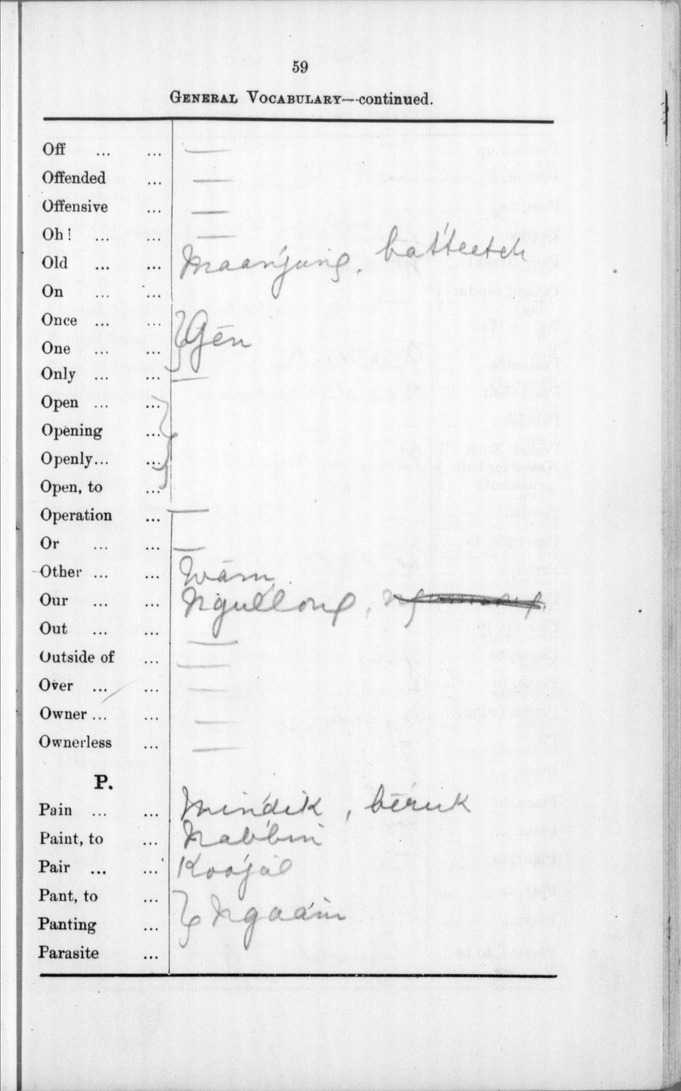 59
GENERAL VOCABULARY—continued.
Off ... ... —
Offended ... —
Offensive —
Oh! ... ... —
Old ... ... Maanjung, batteetch
On ... ...
Once ... ... } Gēn
One ... ...
Only ... —
Open ... ... }
Opening ...
Openly... ...
Open, to ...
Operation ... —
Or ... ... —
Other ... ... Wām
Our ... ... Ngullong,
Out ... ... —
Outside of ... —
Over ... ... —
Owner ... ... —
Ownerless ... —
P.
Pain ... ... Mindik, bēruk
Paint, to ... Nabbin
Pair ... ... Koojal
Pant, to ... } Ngaam
Panting ...
Parasite ...